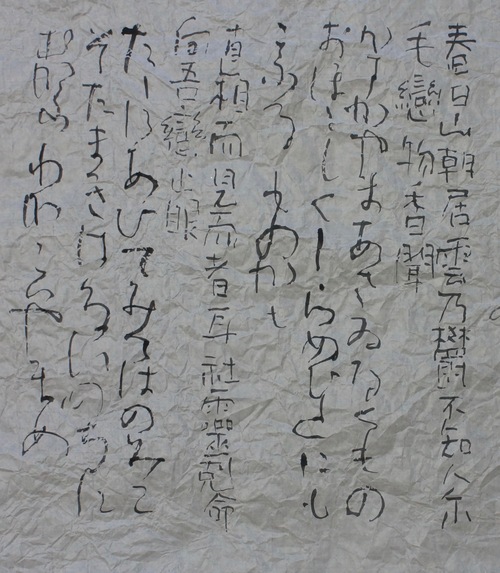 春日山朝居雲乃欝不知人尓
毛戀物香聞
かすかやまあさゐるくもの
おほゝしくしらぬひとにも
こふるものかも
直相而見而者耳社靈剋命
向吾戀止眼
たゝにあひてみてはのみこ
そたまきはるいのちに
むかふわかこひやまめ